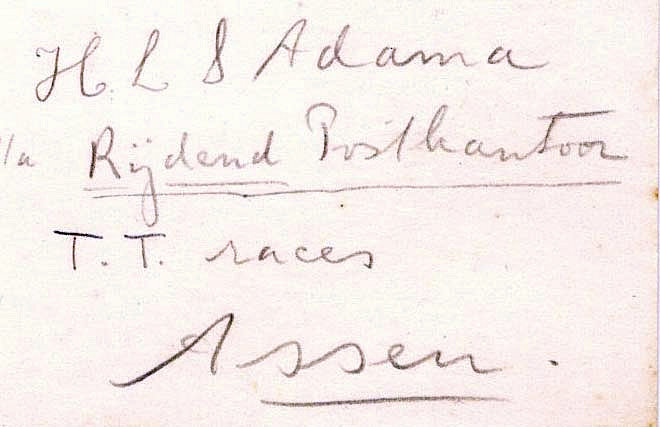 H. L S Adama
/a Rijdend Postkantoor
T.T. races
Assen.